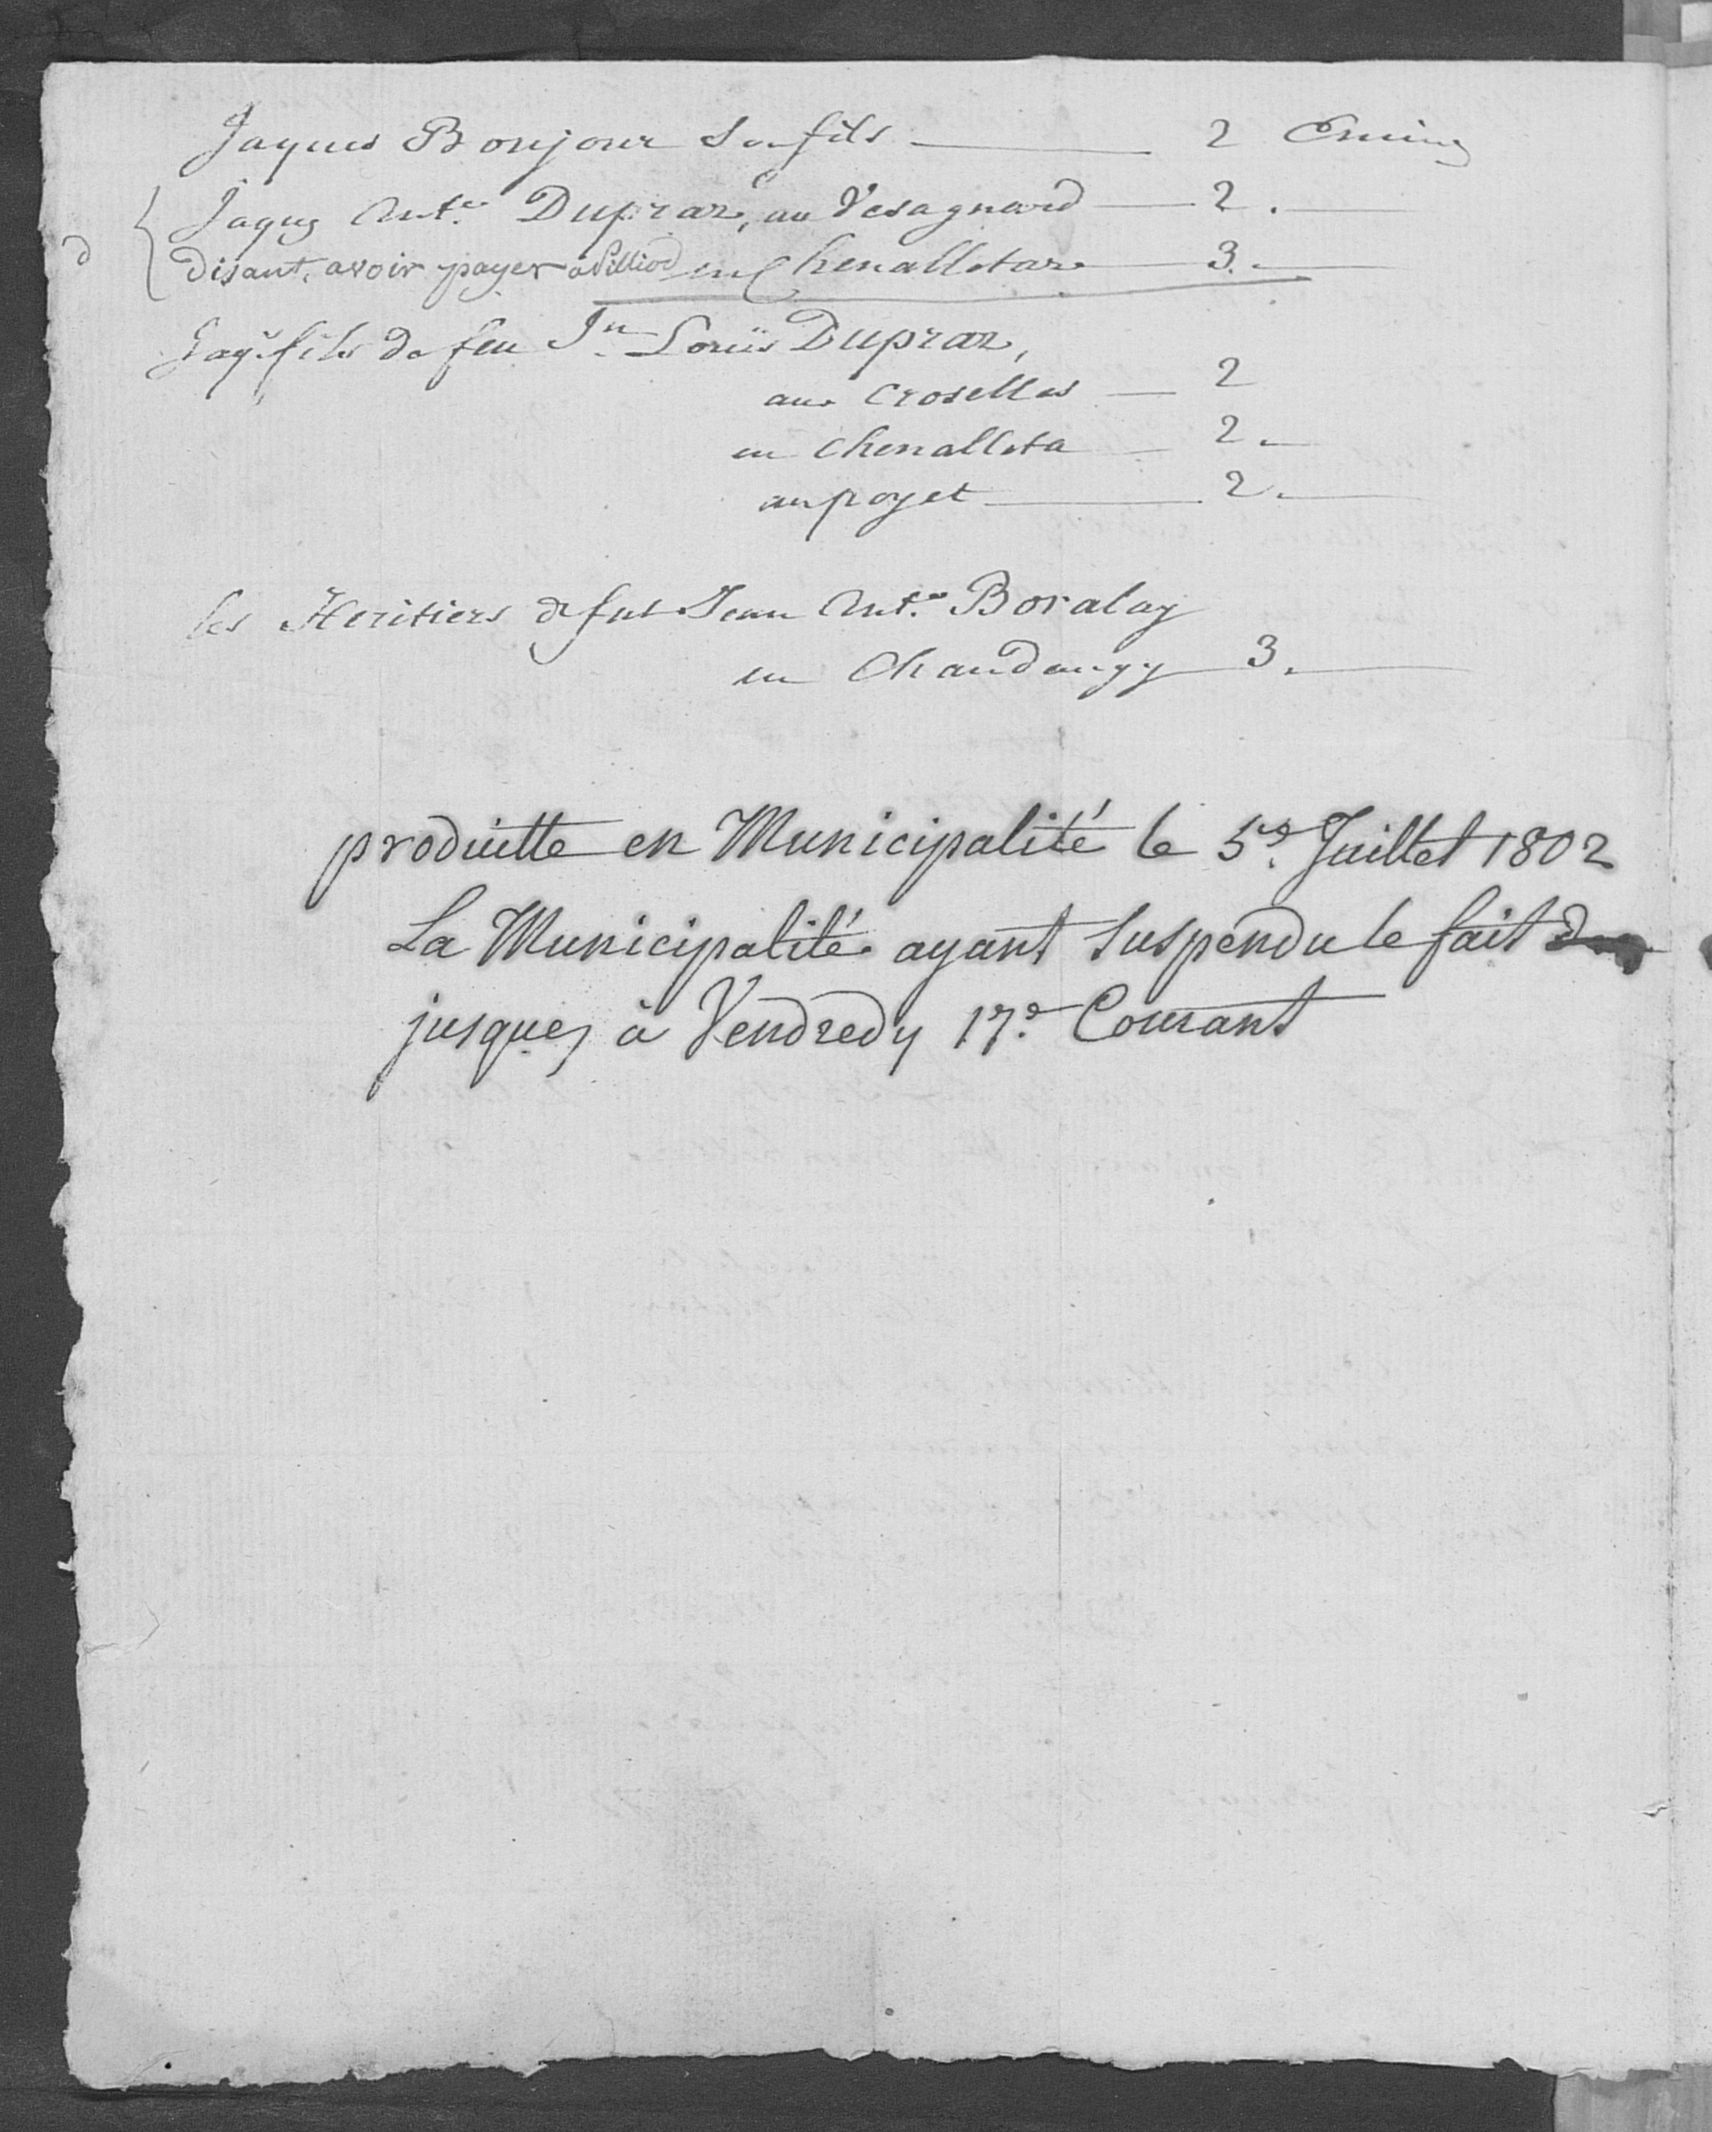 Jaques Bonjour Son fils 2 Emines
Jaques Ant.e Dupraz, au Vesagnard 2.
d disant, avoir payer à Pilliod en Chenalletaz 3.
Jaq.s fils de feu Jn Louïs Dupraz,
aux Crosettes 2
en Chenalleta 2.
au poyet 2.
les Heritiers de fut Jean Ant.e Boralay
en Chaudangy 3.
produitte en Municipalité le 5e. Juillet 1802
La Municipalité ayant Suspendu le fait
jusques à Vendredy 17e. Courant